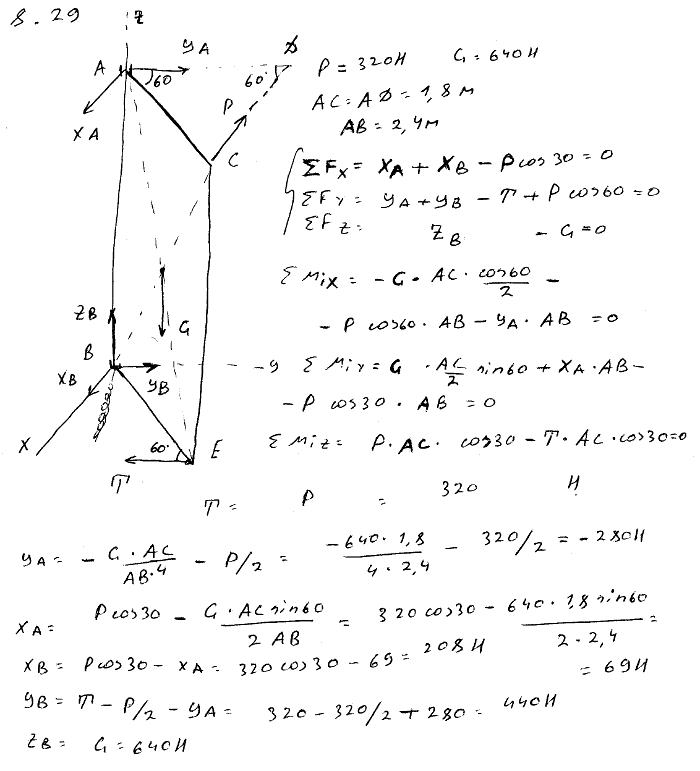 8.29
Z
A YA D
60 60°
XA P
C
P = 320H G = 640H
AC = AD = 1,8 м
AB = 2,4м
ΣFx = XA + XB - P cos 30 = 0
ΣFy = YA + YB - T + P cos60 = 0
ΣFz = ZB - G = 0
Σ Mix = -G · AC · cos60/2 -
- P cos60 · AB - YA · AB = 0
ZB G
B YB - - y
XB
X
60° E
T
Σ Miy = G · AC/2 sin60 + XA · AB -
- P cos30 · AB = 0
Σ Miz = P · AC · cos30 - T · AC · cos30=0
T = P = 320 H
YA = - G · AC/AB·4 - P/2 = -640 · 1,8/4 · 2,4 - 320/2 = -280H
XA = P cos30 - G · AC sin60/2 AB = 320 cos30 - 640 · 1,8 sin60/2 · 2,4 =
= 69H
XB = P cos30 - XA = 320 cos30 - 69 = 208H
YB = T - P/2 - YA = 320 - 320/2 + 280 = 440H
ZB = G = 640H